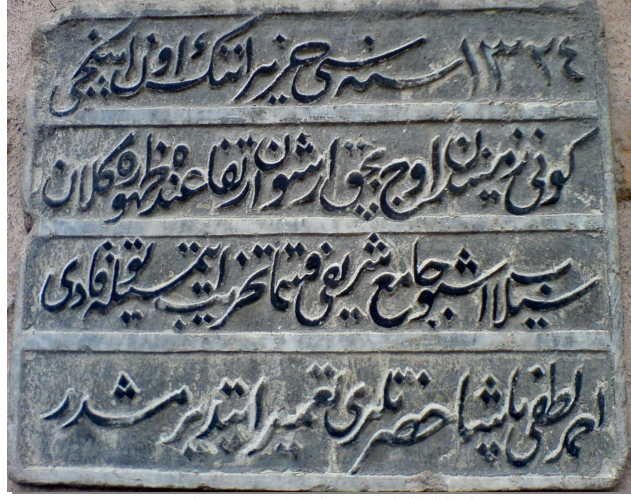 ١٣٢٤ سنه سی حزیراننک اون ایکنجی
کونی زمیندن اوچ بچق ارشون ارتفاعنده ظهوره کلان
سیلاب اشبو جامع شریفی قسما تخریب ایتمسیله
احمد لطفی پاشا حضرتلری تعمیر ایتدیرمشدر